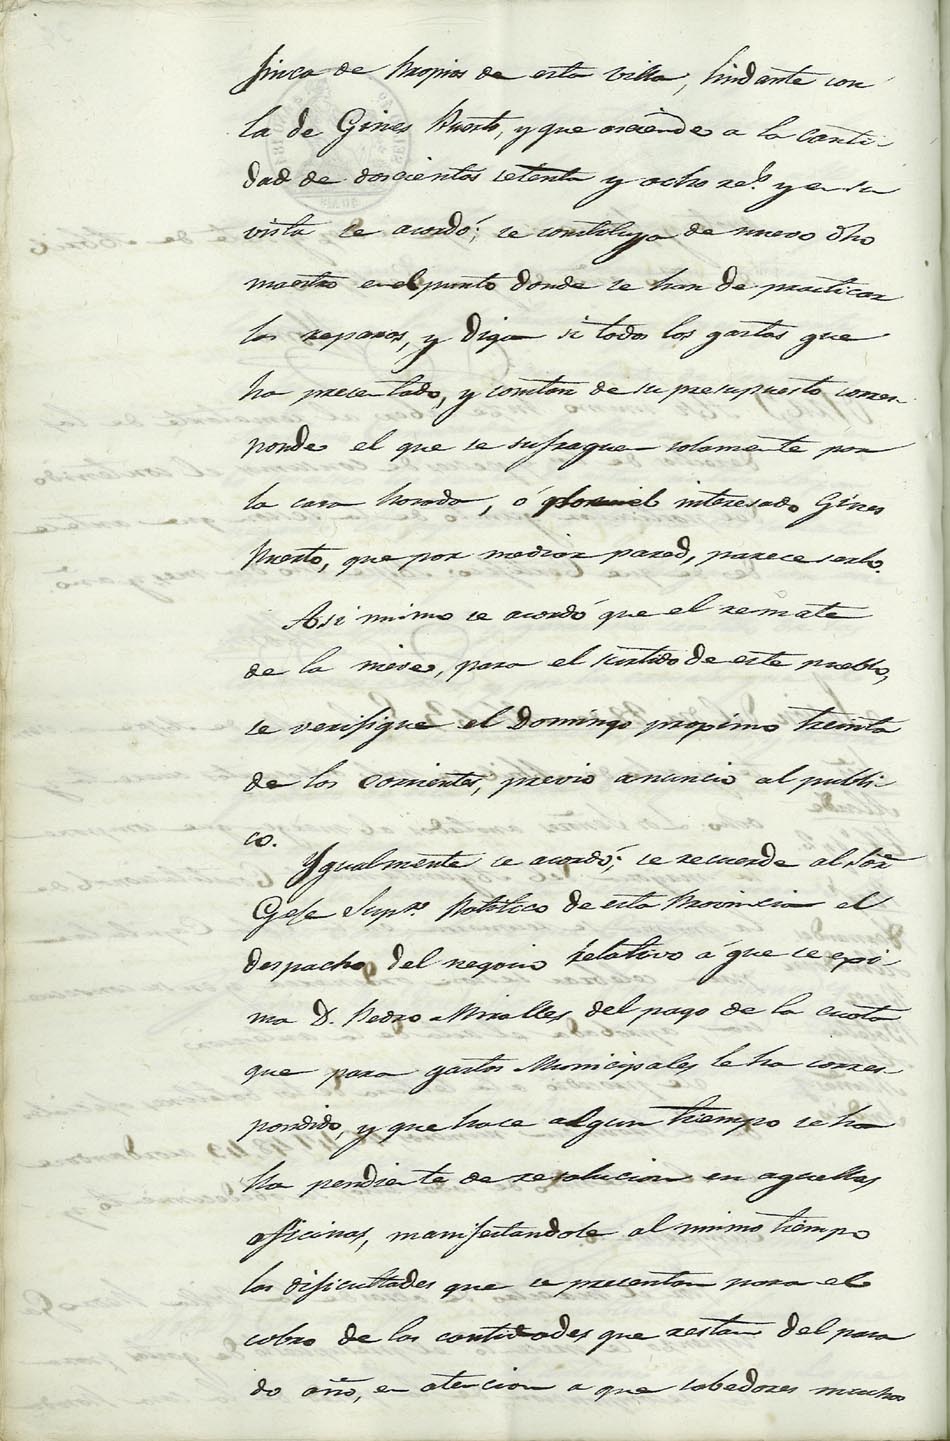 finca de Propios de esta villa, lindante con
la de Gines Puerto, y que asciende a la canti-
dad de doscientos setenta y ocho rs. y en su
vista se acordó; se constituya de nuevo dho
maestro en el punto donde se han de practicar
los reparos, y diga si todos los gastos que
ha presentado, y constan de su presupuesto corres-
ponde el que se sufraguen solamente por
la casa horado, ó por el interesado Gines
Puerto, que por mediar pared, parece serlo.
Asi mismo se acordó que el remate
de la nieve, para el surtido de este pueblo,
se verifique el Domingo propimo treinta
de los corrientes, previo anuncio al publi-
co.
Ygualmente se acordó; se recuerde al Sor
Gefe Supr. Politico de esta Provincia el
despacho del negocio relativo á que se exi-
ma D. Pedro Miralles del pago de la cuota
que para gastos Municipales le ha corres-
pondido, y que hace algun tiempo se ha
lla pendiente de resolucion en aquellas
oficinas, manifestandole al mismo tiempo
las dificultades que se presentan para el
cobro de las cantidades que restan del pasa
do año, en atencion a que sabedores muchos